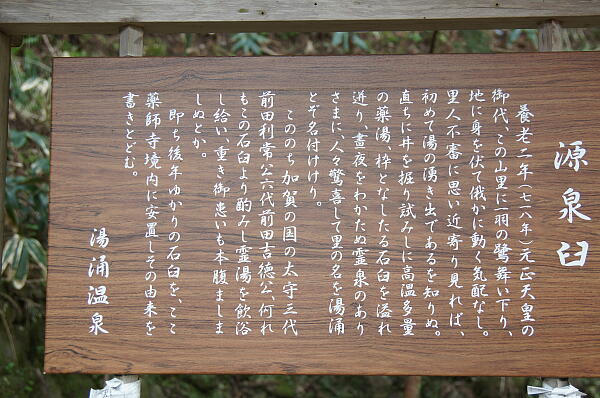 源泉臼
養老二年(七一八年)元正天皇の
御代、この山里に一羽の鷺舞い下り、
地に身を伏て俄かに動く気配なし。
里人不審に思い近寄り見れば、
初めて湯の湧き出であるを知りぬ。
直ちに井を掘り試みしに高温多量
の薬湯、枠となしたる石臼を溢れ
迸り、昼夜をわかたぬ霊泉のあり
さまに、人々驚喜して里の名を湯涌
とぞ名付けけり。
こののち加賀の国の太守三代
前田利常公六代前田吉徳公、何れ
もこの石臼より酌みし霊湯を飲浴
し給い、重き御患いも本腹ましま
しぬとか。
即ち後年ゆかりの石臼を、ここ
薬師寺境内に安置しその由来を
書きとどむ。
湯涌温泉